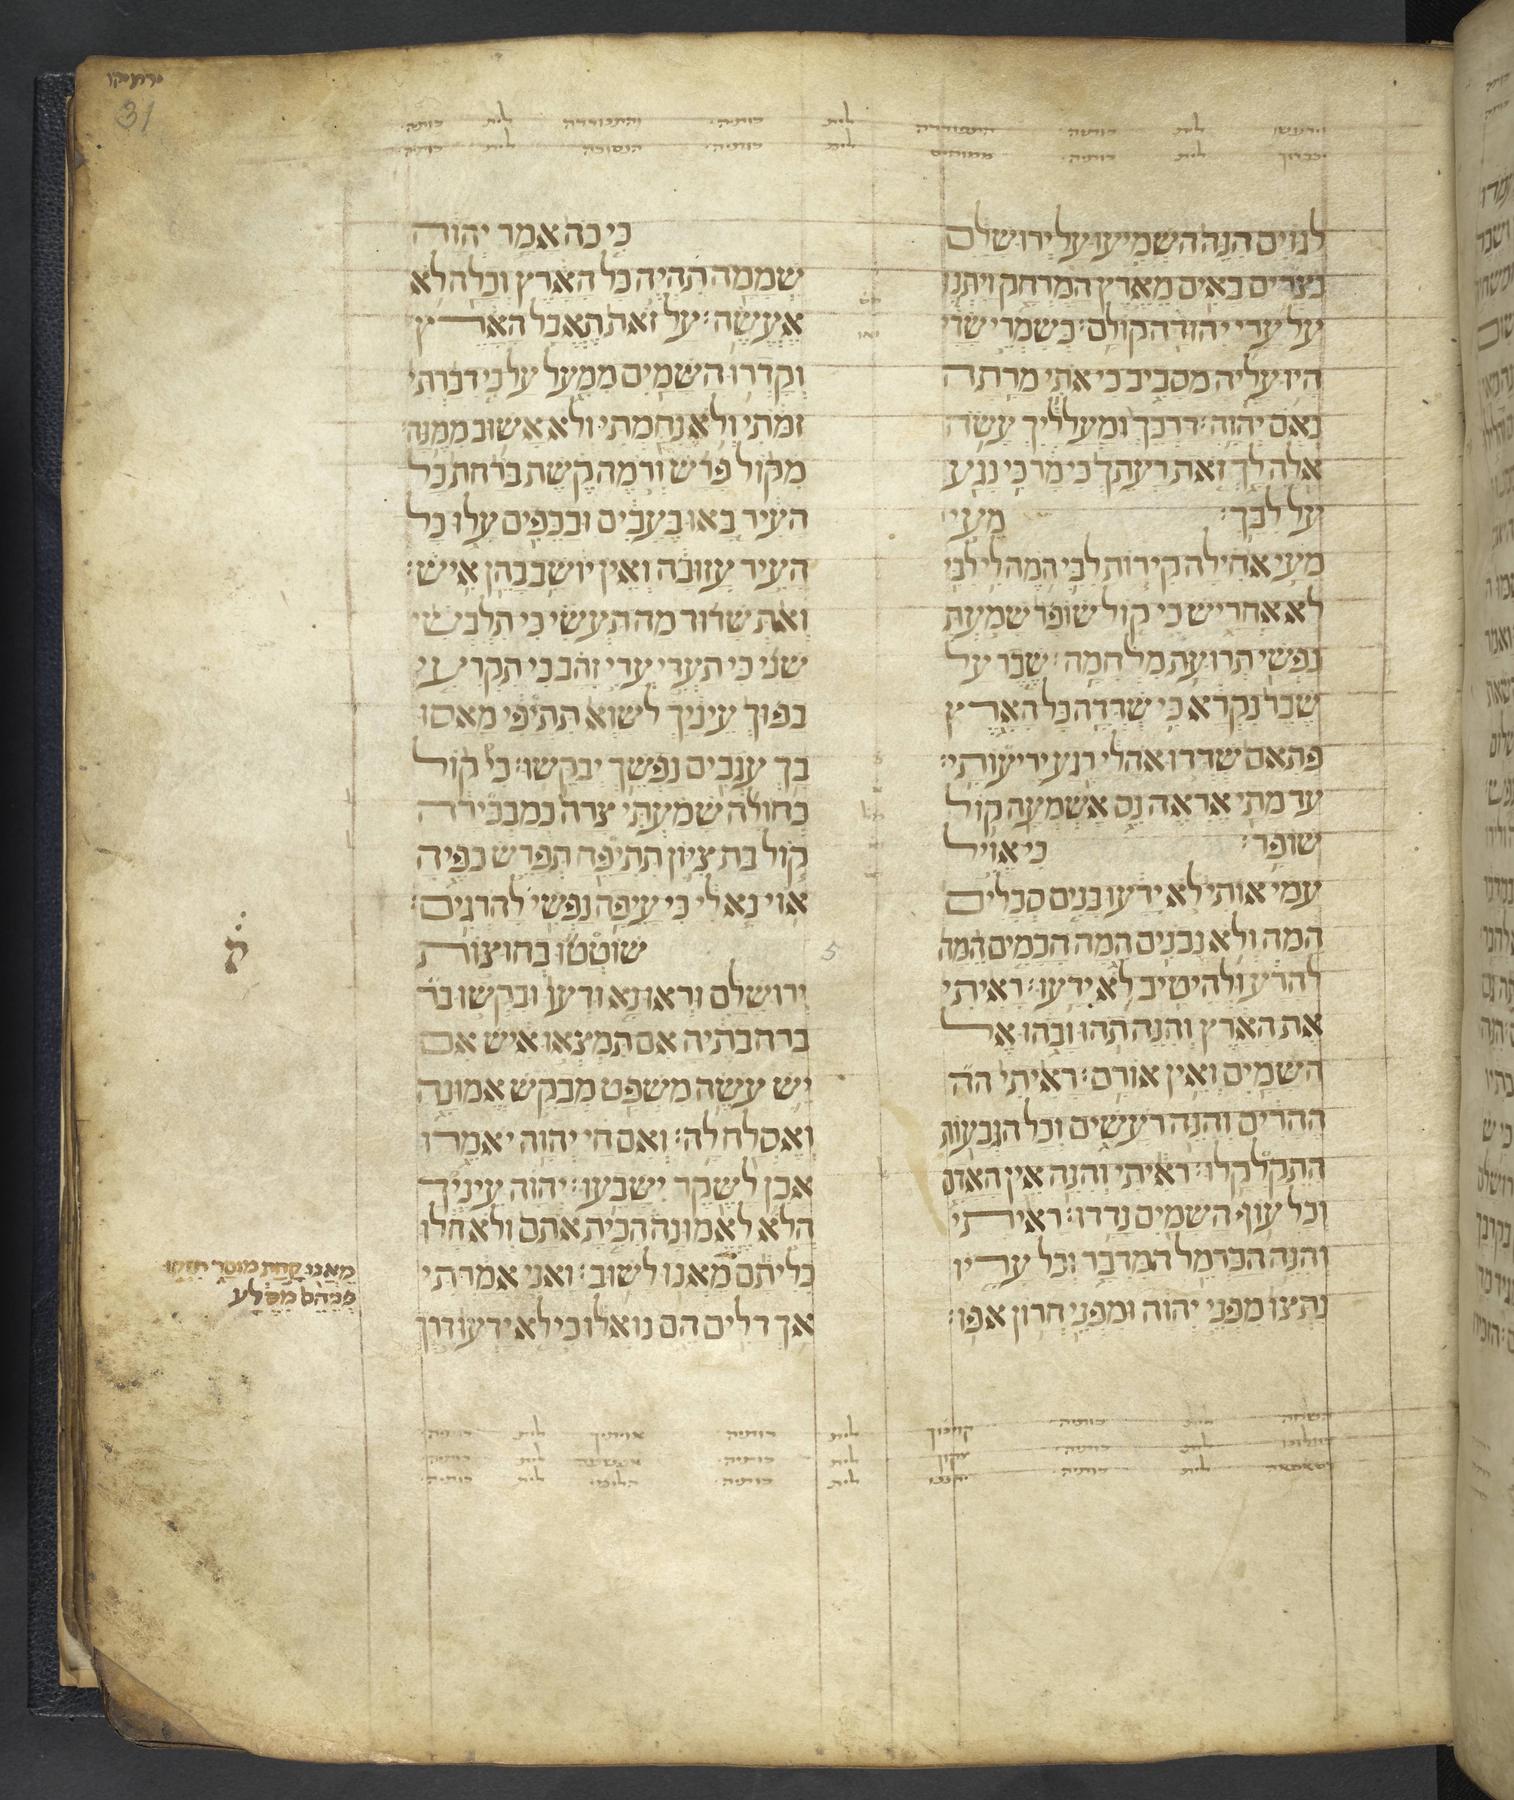 ירמיהו
31
לגוים הנה השמיעו על ירושלם
נצרים באים מארץ המרחק ויתנו
על ערי יהודה קולם׃ כשמרי שדי
היו עליה מסביב כי אתי מרתה
נאם יהוה׃ דרכך ומעלליך עשה
אלה לך זאת רעתך כי מר כי נגע
על לבך׃ מעי
מעי אחילה קירות לבי המה לי לבי
לא אחריש כי קול שופר שמעת
נפשי תרועת מלחמה׃ שבר על
שבר נקרא כי שדדה כל הארץ
פתאם שדדו אהלי רגע יריעותי׃
עד מתי אראה נס אשמעה קול
שופר׃ כי אויל
עמי אותי לא ידעו בנים סכלים
המה ולא נבנים המה חכמים המה
להרע ולהיטיב לא ידעו׃ ראיתי
את הארץ והנה תהו ובהו אל
השמים ואין אורם׃ ראיתי הה
ההרים והנה רעשים וכל הגבעות
התקלקלו׃ ראיתי והנה אין האדם
וכל עוף השמים נדדו׃ ראיתי
והנה הכרמל המדבר וכל עריו
נתצו מפני יהוה ומפני חרון אפו׃
כי כה אמר יהוה
שממה תהיה כל הארץ וכלה לא
אעשה׃ על זאת תאבל הארץ
וקדרו השמים ממעל על כי דברתי
זמתי ולא נחמתי ולא אשוב ממנה׃
מקול פרש ורמה קשת ברחת כל
העיר באו בעבים ובכפים עלו כל
העיר עזובה ואין יושב בהן איש׃
ואת שדוד מה תעשי כי תלבשי
שני כי תעדי עדי זהב כי תקרעי
בפוך עיניך לשוא תתיפי מאסו
בך עגבים נפשך יבקשו׃ כי קול
כחולה שמעתי צרה כמבכירה
קול בת ציון תתיפח תפרש כפיה
אוי נא לי כי עיפה נפשי להרגים׃
5 שוטטו בחוצות
ירושלם וראו נא ודעו ובקשו בר
ברחבתיה אם תמצאו איש אם
יש עשה משפט מבקש אמונה
ואסלח לה׃ ואם חי יהוה יאמרו
אכן לשקר ישבעו׃ יהוה עיניך
הלא לאמונה הכית אתם ולא חלו
כליתם מאנו לשוב׃ ואני אמרתי
אך דלים הם נואלו כי לא ידעו דרך
מאנו קחת מוסר חזקו
פניהם מסלע